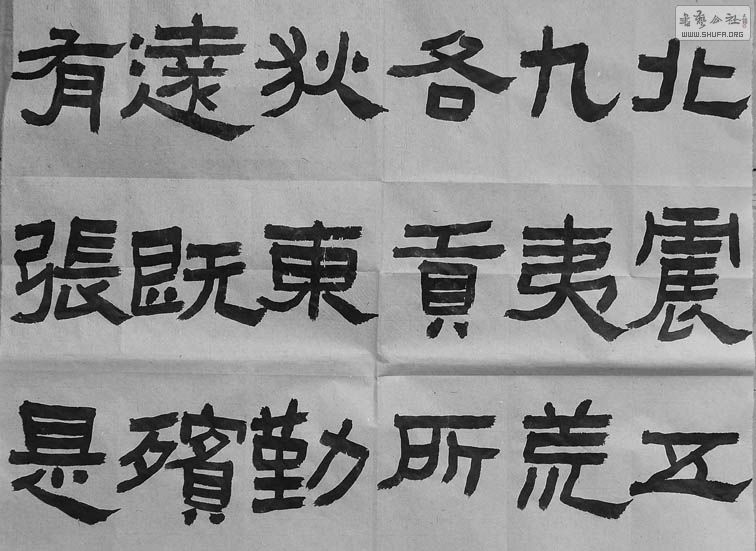 北震五
九夷荒
各貢所
狄東勤
遠既殯
有張是
书艺公社
WWW.SHUFA.ORG